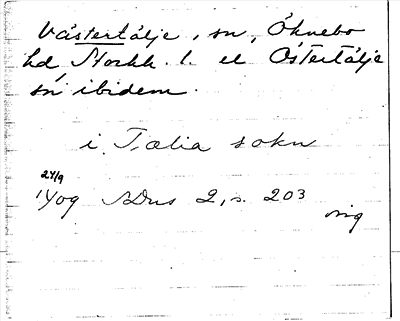 Västertälje, sn, Öknebo
hd, Stockh. l. el Östertälje
sn ibidem.
i Tælia sokn
24/9
1409 SDns 2, s. 203
orig